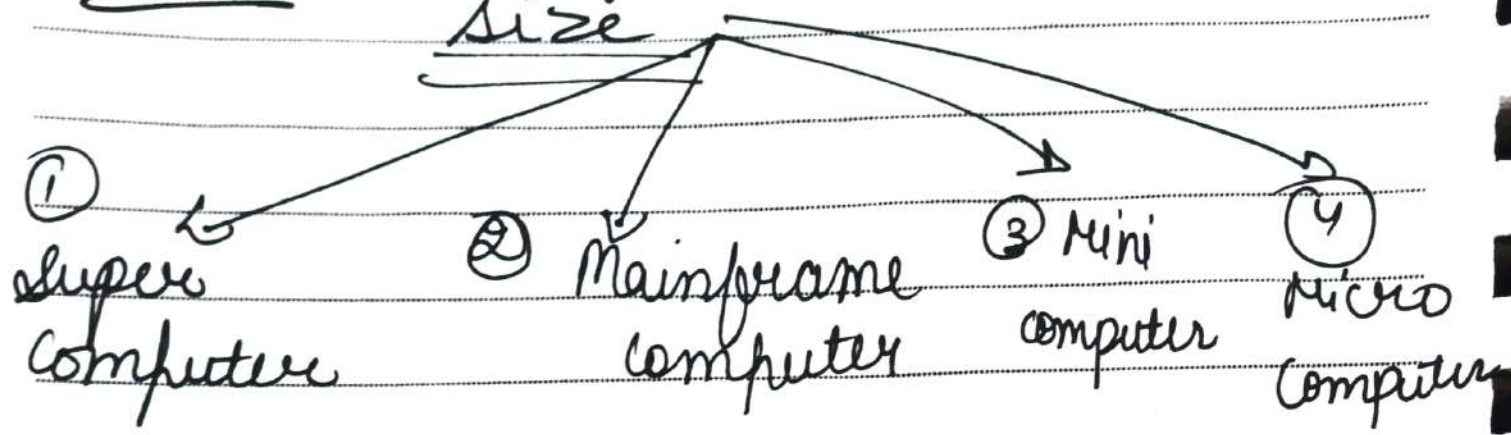 Size
① Super
Computer
② Mainframe
Computer
③ Mini
Computer
④ Micro
Computer